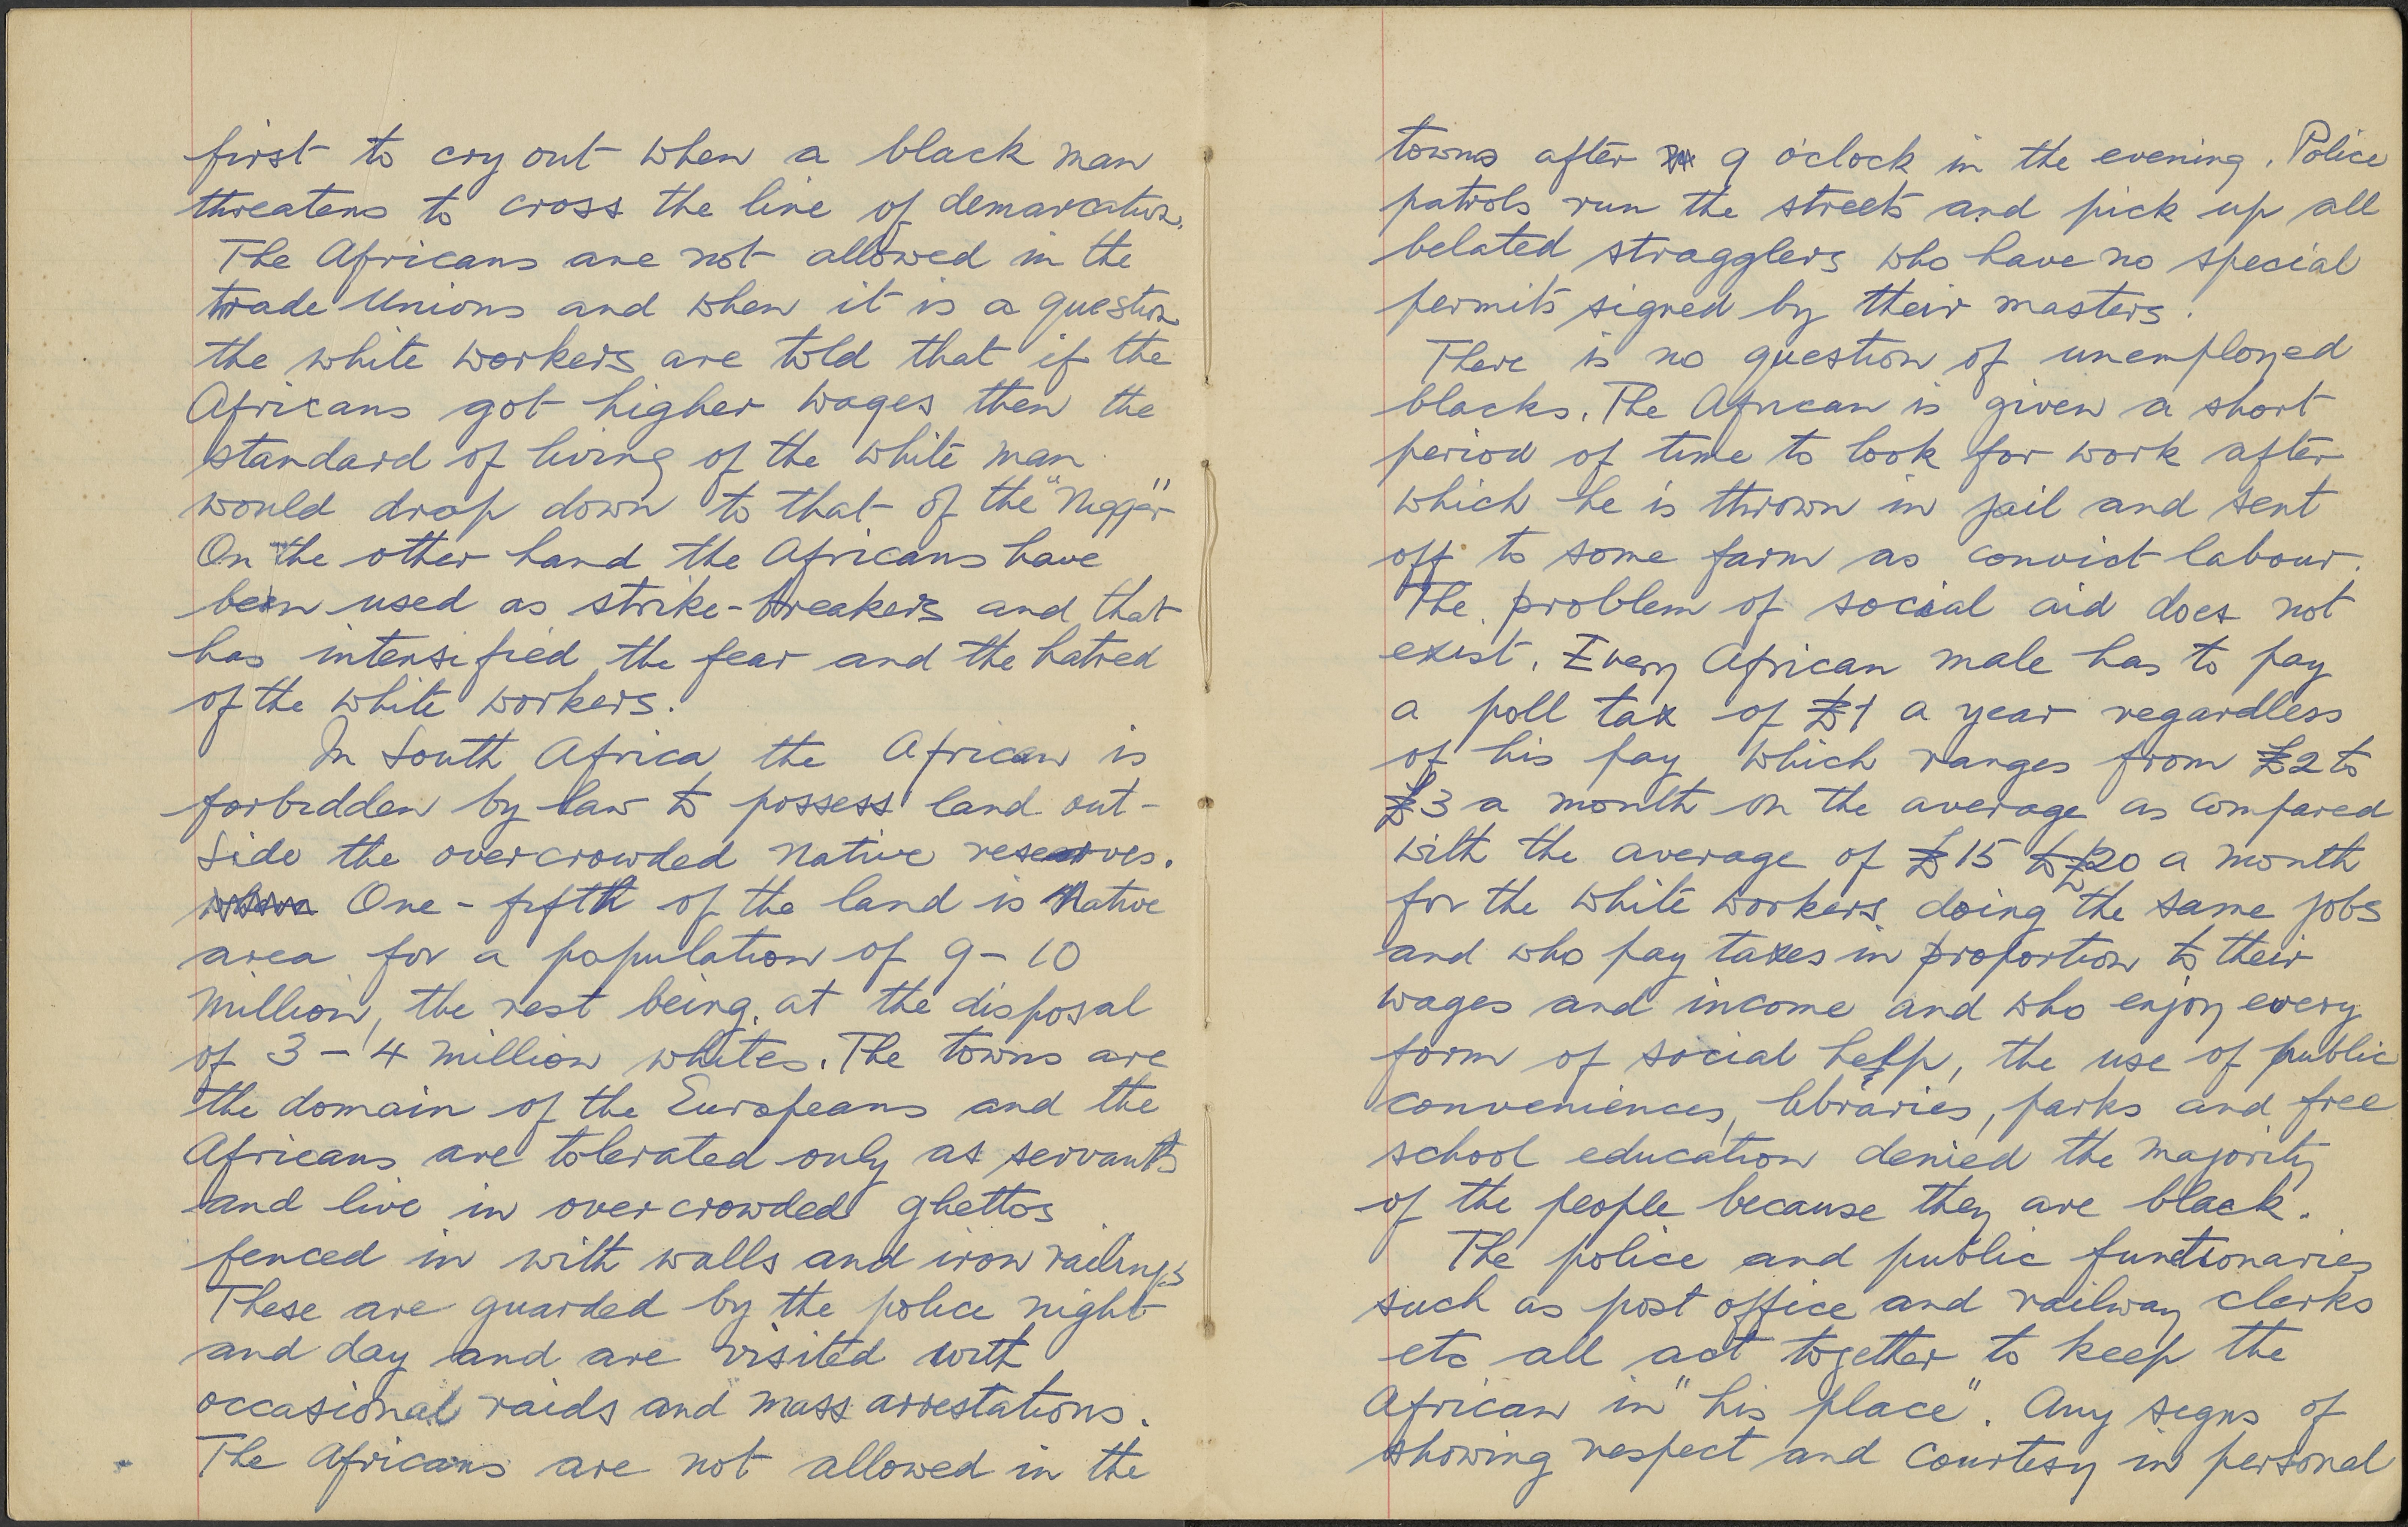 first to cry out when a black man
threatens to cross the line of demarcation.
The Africans are not allowed in the
trade Unions and when it is a question
the white workers are told that if the
Africans got higher wages then the
standard of living of the white man
would drop down to that of the "Nigger"
On the other hand the Africans have
been used as strike-breakers and that
has intensified the fear and the hatred
of the white workers.
In South Africa the African is
forbidden by law to possess land out-
side the overcrowded native reserves.
One-fifth of the land is Native
area for a population of 9-10
million, the rest being at the disposal
of 3-4 million whites. The towns are
the domain of the Europeans and the
Africans are tolerated only as servants
and live in overcrowded ghettos
fenced in with walls and iron railings
These are guarded by the police night
and day and are visited with
occasional raids and mass arrestations.
The Africans are not allowed in the
towns after 9 o'clock in the evening. Police
patrols run the streets and pick up all
belated stragglers who have no special
permits signed by their masters.
There is no question of unemployed
blacks. The African is given a short
period of time to look for work after
which he is thrown in jail and sent
off to some farm as convict labour.
The problem of social aid does not
exist. Every African male has to pay
a poll tax of £1 a year regardless
of his pay which ranges from £2 to
£3 a month on the average as compared
with the average of £15 to £20 a month
for the white workers doing the same jobs
and who pay taxes in proportion to their
wages and income and who enjoy every
form of social help, the use of public
conveniences, libraries, parks and free
school education denied the majority
of the people because they are black.
The police and public functionaries
such as post office and railway clerks
etc all act together to keep the
African in "his place". Any signs of
showing respect and courtesy in personal